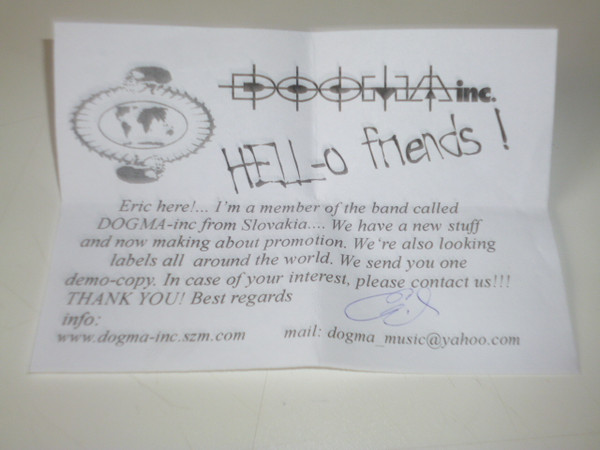 DOGMA inc.
HELL-O friends !
Eric here!... I'm a member of the band called
DOGMA-inc from Slovakia.... We have a new stuff
and now making about promotion. We're also looking
labels all around the world. We send you one
demo-copy. In case of your interest, please contact us!!!
THANK YOU! Best regards
info:
www.dogma-inc.szm.com mail: dogma_music@yahoo.com